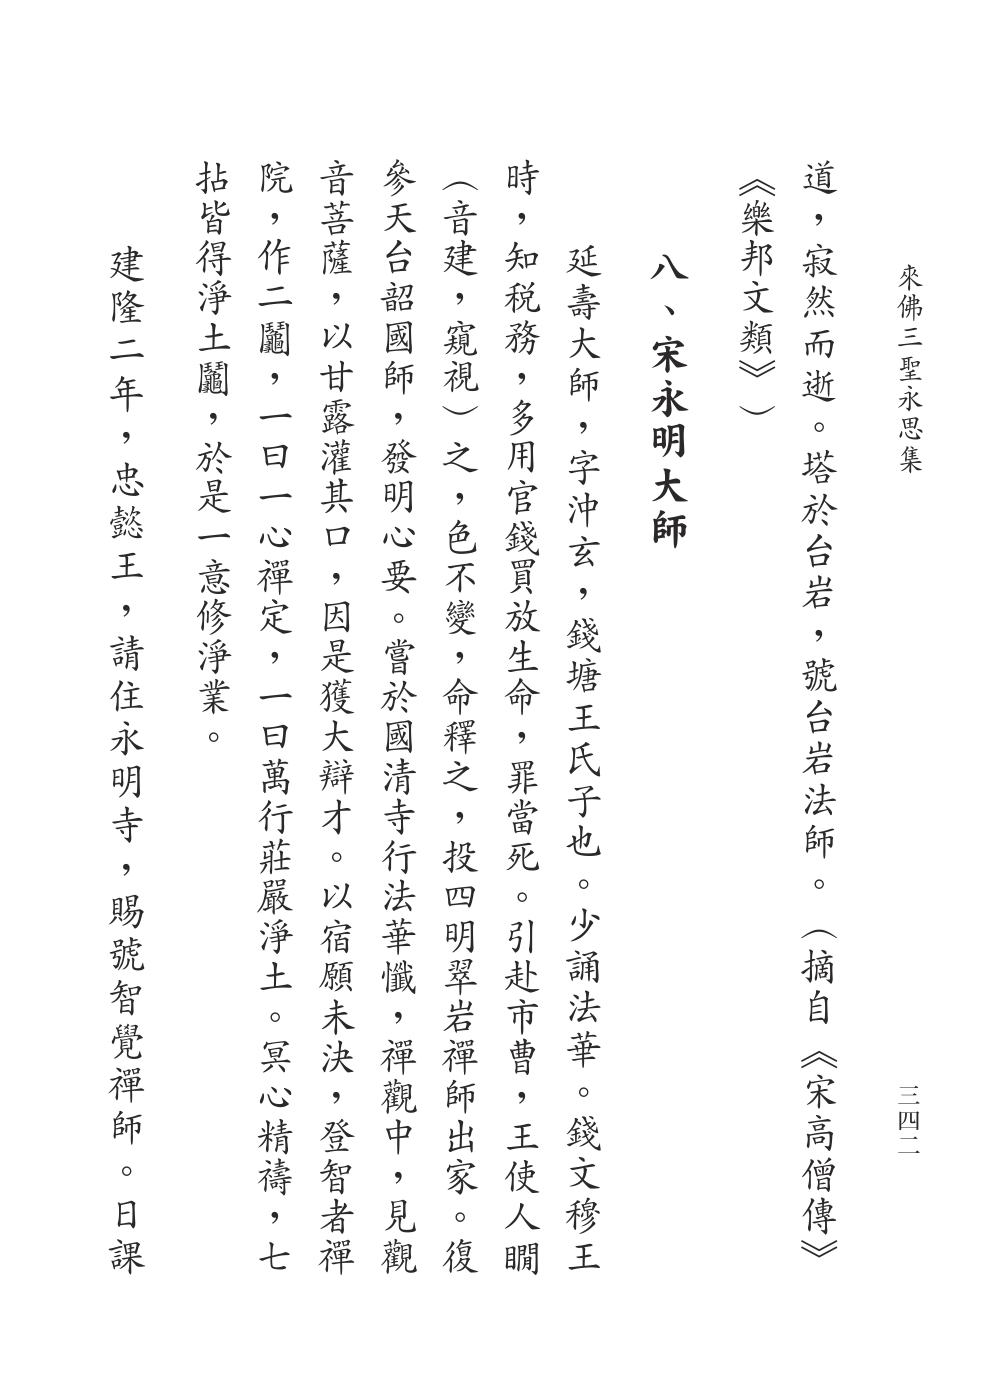 來佛三聖永思集
三四二
道，寂然而逝。塔於台岩，號台岩法師。（摘自《宋高僧傳》
《樂邦文類》）
八、宋永明大師
延壽大師，字沖玄，錢塘王氏子也。少誦法華。錢文穆王
時，知税務，多用官錢買放生命，罪當死。引赴市曹，王使人瞷
（音建，窺視）之，色不變，命釋之，投四明翠岩禪師出家。復
參天台韶國師，發明心要。嘗於國清寺行法華懺，禪觀中，見觀
音菩薩，以甘露灌其口，因是獲大辯才。以宿願未決，登智者禪
院，作二鬮，一曰一心禪定，一曰萬行莊嚴淨土。冥心精禱，七
拈皆得淨土鬮，於是一意修淨業。
建隆二年，忠懿王，請住永明寺，賜號智覺禪師。日課